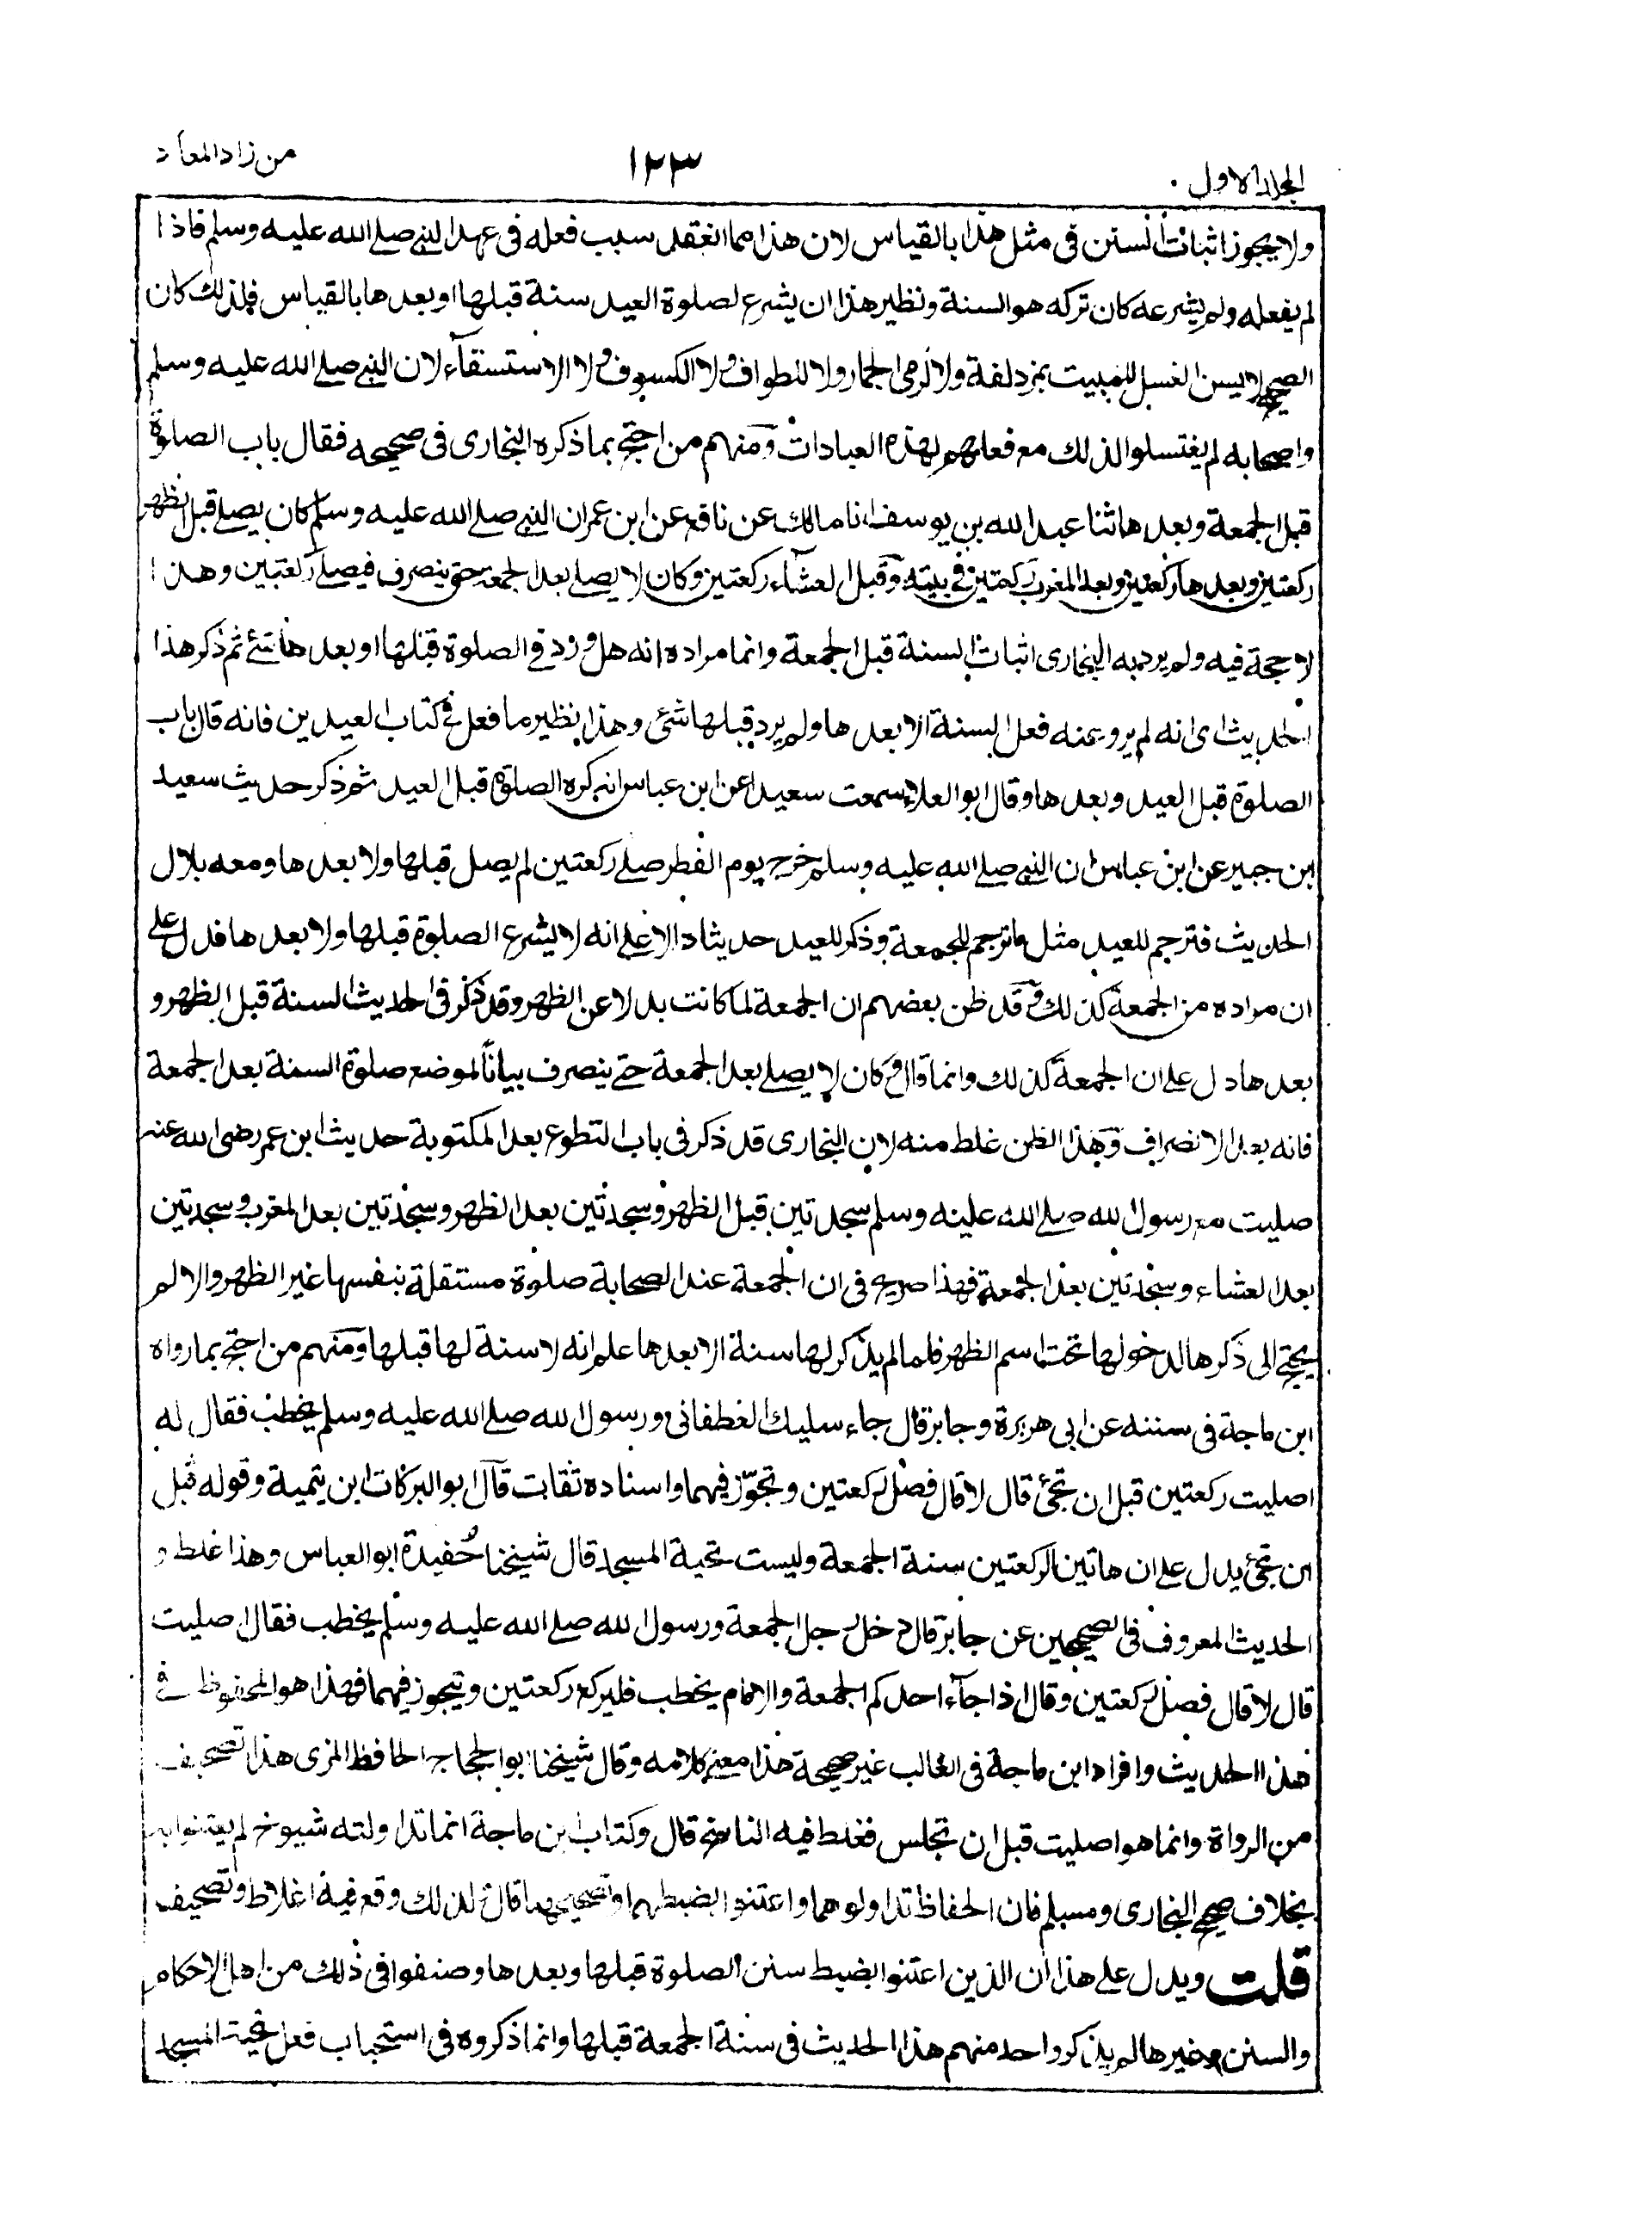 المجلد الاول
١٢٣
من زاد المعاد
ولا يجوز اثبات السنن فى مثل هذا بالقياس لان هذا مما انعقد سبب فعله فى عهد النبي صلے الله عليه وسلم فاذا
لم يفعله ولم يشرعه كان تركه هو السنة ونظير هذا ان يشرع لصلوة العيد سنة قبلها او بعدها بالقياس فلذلك كان
الصحيح لا يسن الغسل للمبيت بمزدلفة ولا لرمى الجمار ولا للطواف ولا للكسوف ولا الاستسقاء لان النبي صلے الله عليه وسلم
واصحابه لم يغتسلوا لذلك مع فعلهم لهذه العبادات ومنهم من احتج بما ذكره البخارى فى صحيحه فقال باب الصلوة
قبل الجمعة وبعدها ثنا عبد الله بن يوسف انا مالك عن نافع عن ابن عمر ان النبي صلے الله عليه وسلم كان يصلے قبل الظهر
ركعتين وبعدها ركعتين وبعد المغرب ركعتين فى بيته وقبل العشاء ركعتين وكان لا يصلے بعد الجمعة حتى ينصرف فيصلے ركعتين وهذا
لا حجة فيه ولم يرد به البخارى اثبات السنة قبل الجمعة وانما مراده انه هل ورد فى الصلوة قبلها او بعدها شئ ثم ذكر هذا
الحديث اى انه لم يرو عنه فعل السنة الا بعدها ولم يرد قبلها شئ وهذا نظير ما فعل فى كتاب العيدين فانه قال باب
الصلوة قبل العيد وبعدها وقال ابو العلاء سمعت سعيدا عن ابن عباس انه كره الصلوة قبل العيد ثم ذكر حديث سعيد
ابن جبير عن ابن عباس ان النبي صلے الله عليه وسلم خرج يوم الفطر صلے ركعتين لم يصل قبلها ولا بعدها ومعه بلال
الحديث فترجم للعيد مثل ما ترجم للجمعة وذكر للعيد حديثا دالا على انه لا يشرع الصلوة قبلها ولا بعدها فدل على
ان مراده من الجمعة كذلك وقد ظن بعضهم ان الجمعة لما كانت بدلا عن الظهر وقد ذكر فى الحديث السنة قبل الظهر و
بعدها دل على ان الجمعة كذلك وانما قال وكان لا يصلے بعد الجمعة حتے ينصرف بيانًا لموضع صلوة السنة بعد الجمعة
فانه بعد الانصراف وهذا الظن غلط منه لان البخارى قد ذكر فى باب التطوع بعد المكتوبة حديث ابن عمر رضى الله عنه
صليت مع رسول الله صلے الله عليه وسلم سجدتين قبل الظهر وسجدتين بعد الظهر وسجدتين بعد المغرب وسجدتين
بعد العشاء وسجدتين بعد الجمعة فهذا صريح فى ان الجمعة عند الصحابة صلوة مستقلة بنفسها غير الظهر والا لم
يحتج الى ذكرها لدخولها تحت اسم الظهر فلما لم يذكر لها سنة الا بعدها علم انه لا سنة لها قبلها ومنهم من احتج بما رواه
ابن ماجة فى سننه عن ابى هريرة وجابر قال جاء سليك الغطفانى ورسول الله صلے الله عليه وسلم يخطب فقال له
اصليت ركعتين قبل ان تجئ قال لا قال فصل ركعتين وتجوّز فيهما واسناده ثقات قال ابو البركات ابن تيمية وقوله قبل
ان تجئ يدل على ان هاتين الركعتين سنة الجمعة وليست تحية المسجد قال شيخنا حُفيدة ابو العباس وهذا غلط و
الحديث المعروف فى الصحيحين عن جابر قال دخل رجل الجمعة ورسول الله صلے الله عليه وسلم يخطب فقال اصليت
قال لا قال فصل ركعتين وقال اذا جآء احدكم الجمعة والامام يخطب فليركع ركعتين ويتجوز فيهما فهذا هو المحفوظ فى
هذا الحديث وافراد ابن ماجة فى الغالب غير صحيحة هذا معنے كلامه وقال شيخنا ابو الحجاج الحافظ المزى هذا تصحيف
من الرواة وانما هو اصليت قبل ان تجلس فغلط فيه الناسخ قال وكتاب ابن ماجة انما تداولته شيوخ لم يعتنوا به
بخلاف صحيح البخارى ومسلم فان الحفاظ تداولوهما واعتنوا بضبطهما وتصحيحهما قال لذلك وقع فيه اغلاط وتصحيف
قلت ويدل على هذا ان الذين اعتنوا بضبط سنن الصلوة قبلها وبعدها وصنفوا فى ذلك من اهل الاحكام
والسنن وغيرها لم يذكر واحد منهم هذا الحديث فى سنة الجمعة قبلها وانما ذكروه فى استحباب فعل تحية المسجد